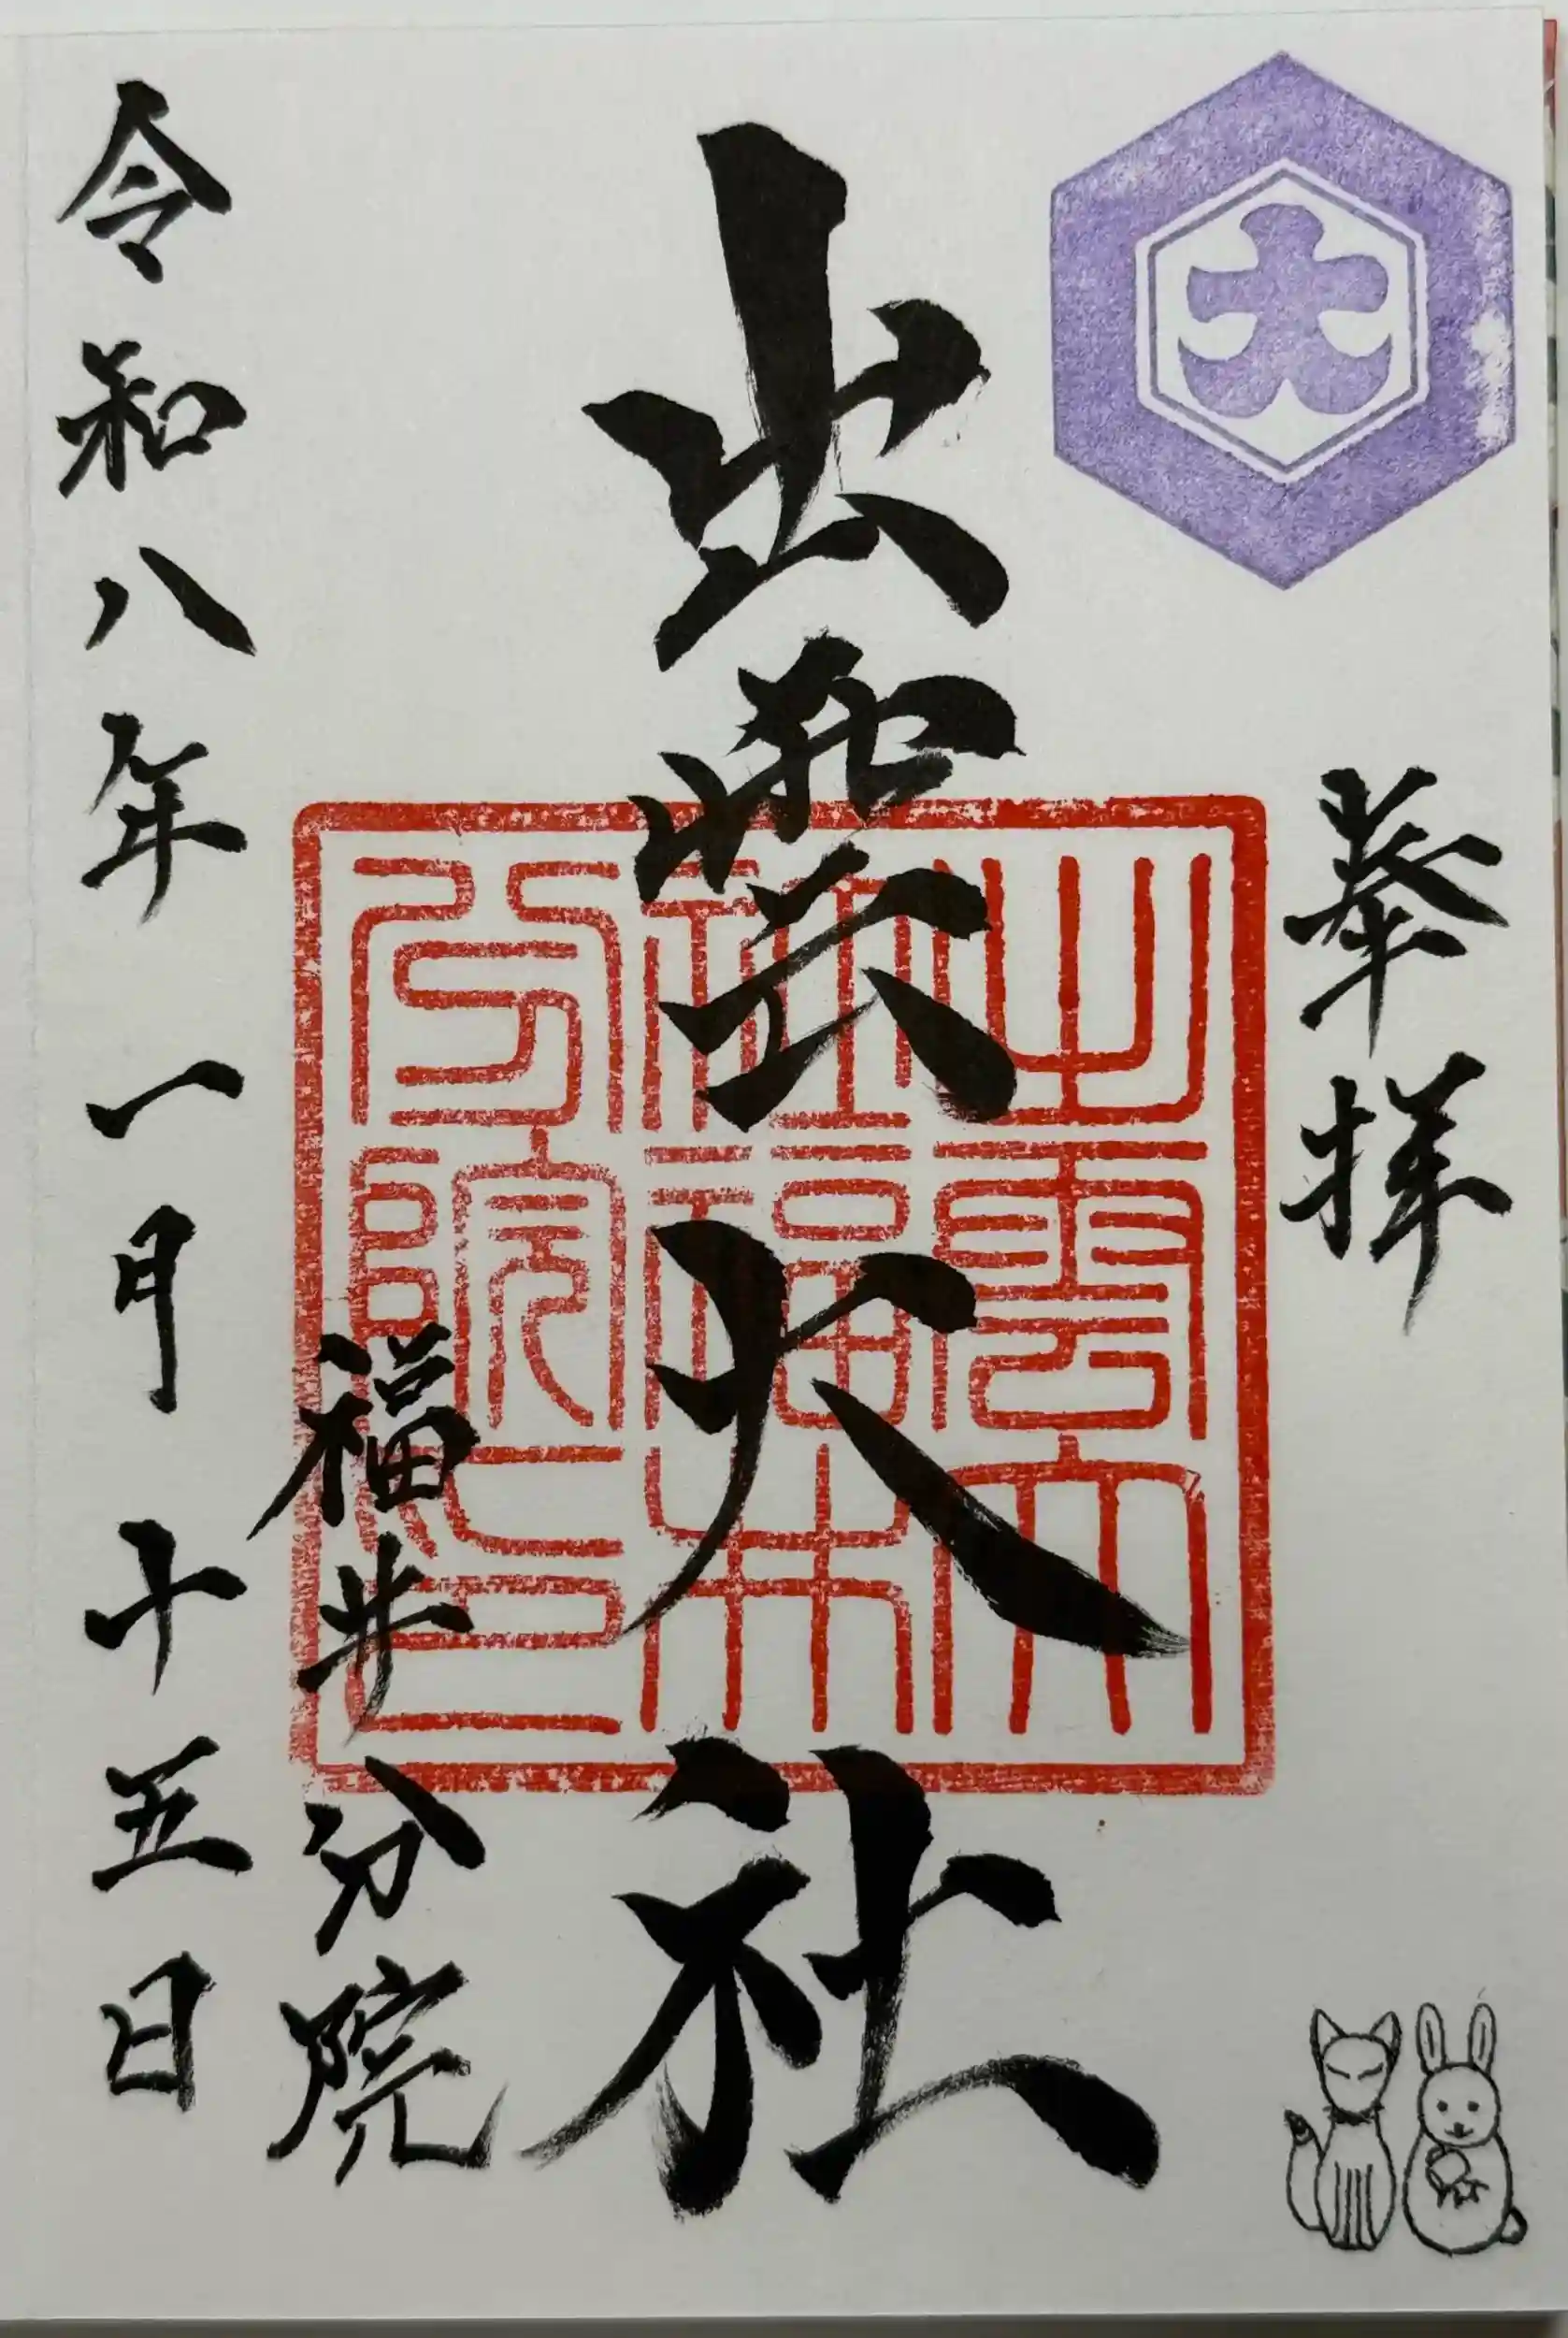 大
奉拝
出雲大社
出雲大
社福井
分院之印
福井分院
令和八年一月十五日